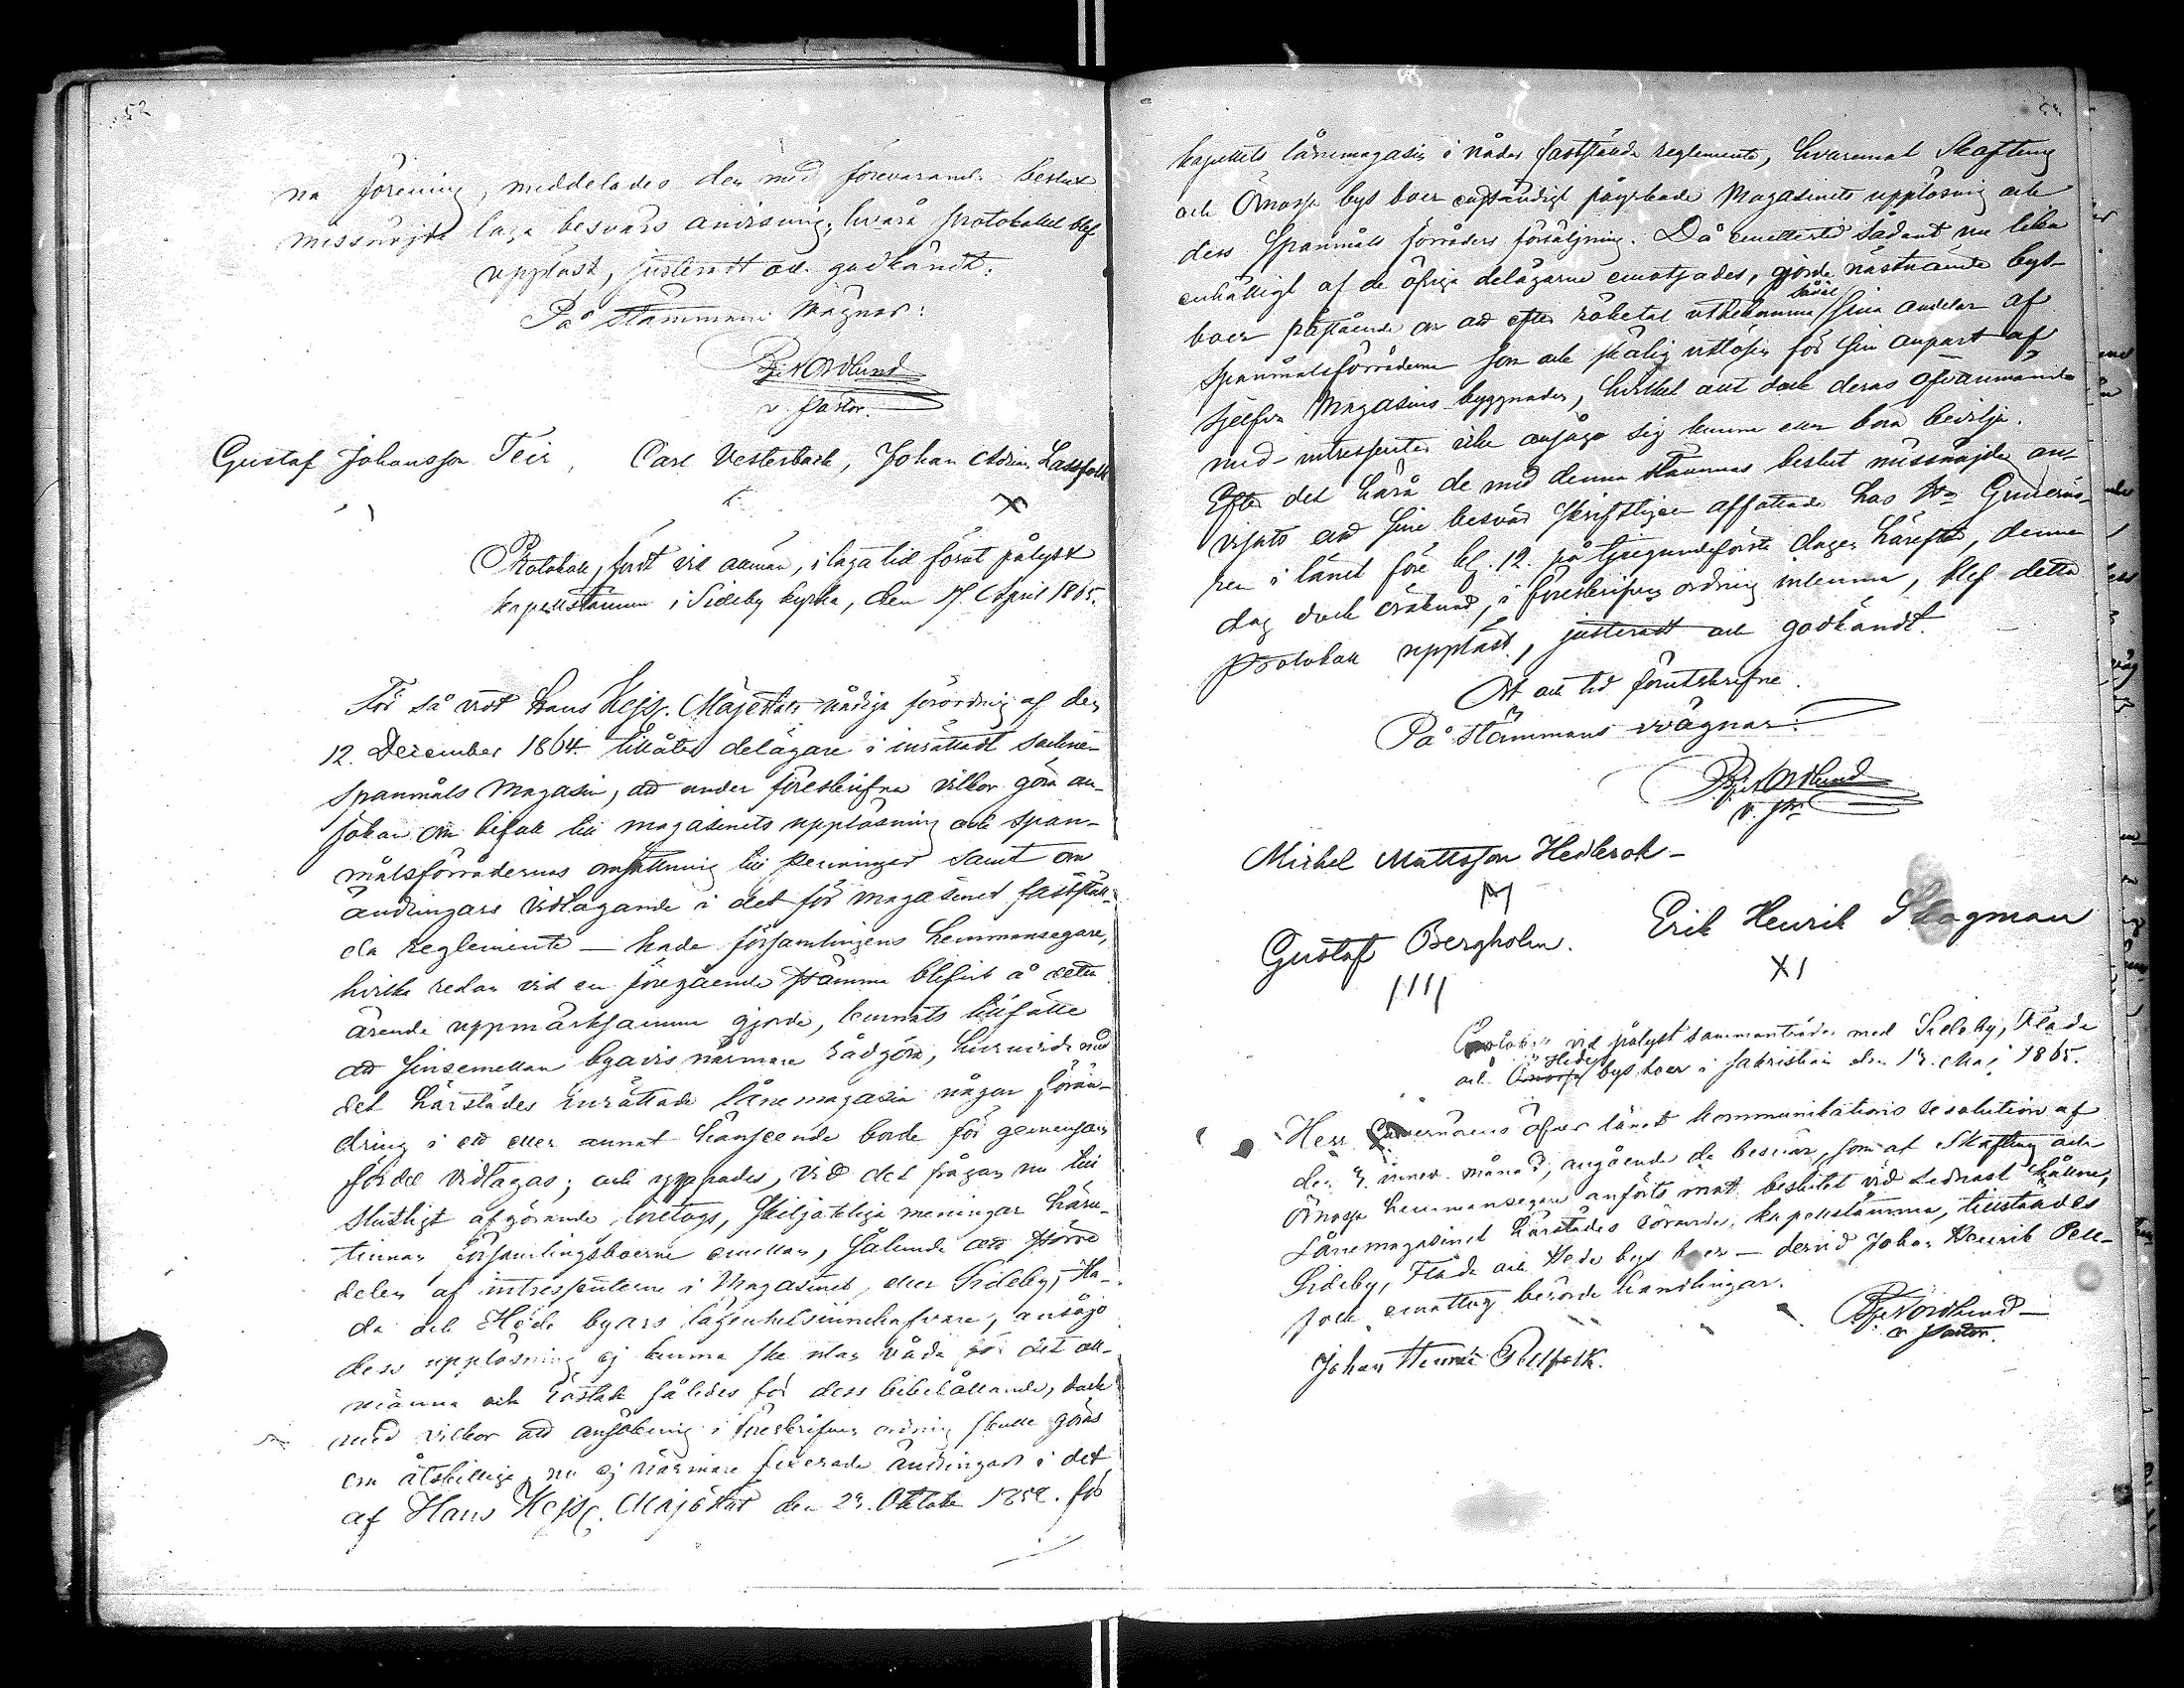 52
na förening, meddelades den med förevarande beslut
missnöjde laga besvärs anvisning; hvarå protokollet blef
uppläst, justeradt och godkändt.
På Stämmans vägnar:
Nordlund
v. pastor.
Gustaf Johansson Teir, Carl Vesterback, Johan Adrian Lassfolk
X
Protokoll, fördt vid allmän, i laga tid förut pålyst
kapellstämma i Sideby kyrka, den 17 April 1865.
För så vidt Hans Kejs. Majestäts nådiga förordning af den
12. December 1864. tillåter delägare i inrättadt sockne-
spanmåls Magasin, att under föreskrifna vilkor göra an-
sökan om befall till magasinets upplösning och span-
målsförrådernas omsättning till penningar samt om
ändringars vidtagande i det för magasinet faststäl-
da reglemente — hade församlingens hemmansegare,
hvilka redan vid en föregående stämma blifvit å detta
ärende uppmärksamma gjorde, kunnats tillfälle
att sinsemellan byavis närmare rådgöra, huruvida med
det härstädes inrättade lånemagasin någon förän-
dring i ett eller annat hänseende borde för gemensam
fördel vidtagas; och yppades, vid det frågan nu till
slutligt afgörande företogs, skiljaktiga meningar häru-
tinnan församlingsboerne emellan, sålunda att större
delen af intressenterne i Magasinet, eller Sideby, Fla-
da och Hede byars lägenhetsinnehafvare, ansågo
dess upplösning ej kunna ske utan våda för det all-
männa och röstade således för dess bibehållande, dock
med vilkor att ansökning i föreskrifven ordning skulle göras
om åtskillige, nu ej närmare fixerade ändringar i det
af Hans Kejs. Majestät den 29. Oktober 1852. för
kapellets lånemagasin i nåder fastställde reglemente, hvaremot Skaftung
och Ömossa bys boer enständigt påyrkade Magasinets upplösning och
dess Spanmåls förråders försäljning. Då emellertid sådant nu lika
enhälligt af de öfriga delägarne emotsades, gjorde nästnämnde bys-
boer påstående om att efter röketal utbekomma såväl sina andelar af
spanmålsförråderne som ock skälig utlösen för sin anpart af
sjelfva Magasins-byggnaden, hvilket allt dock deras ofvannämnde
med-intressenter icke ansågo sig kunna eller böra bevilja.
Efter det härå de med denna stämmas beslut missnöjde an-
visats att sine besvär skriftligen affattade hos Hr Guvernö-
ren i länet före kl. 12. på tjugundeförsta dagen härefter, denna
dag dock oräknad, i föreskrifven ordning inlemna, blef detta
protokoll uppläst, justeradt och godkändt.
Ort och tid förutskrifne.
På Stämmans vägnar:
Nordlund
v. pr
Mickel Mattsson Hedkrok
Gustaf Bergholm. Erik Henrik Skogman
IIII XI
Protokoll vid pålyst sammanträde med Sideby, Flada
och Ömossa Hede bys boer i sakristian den 17. Maj 1865.
Herr Guvernörens öfver länet kommunikations resolution af
den 9. innev. månad, angående de besvär, som af Skaftung och
Ömossa hemmansegare anförts mot beslutet vid sednast hållne,
Lånemagasinet härstädes rörande, kapellstämma, tillstäldes
Sideby, Flada och Hede bys boer — dervid Johan Henrik Pell-
folk emottog berörde handlingar.
Nordlund
v. pastor.
Johan Henrik Pellfolk.